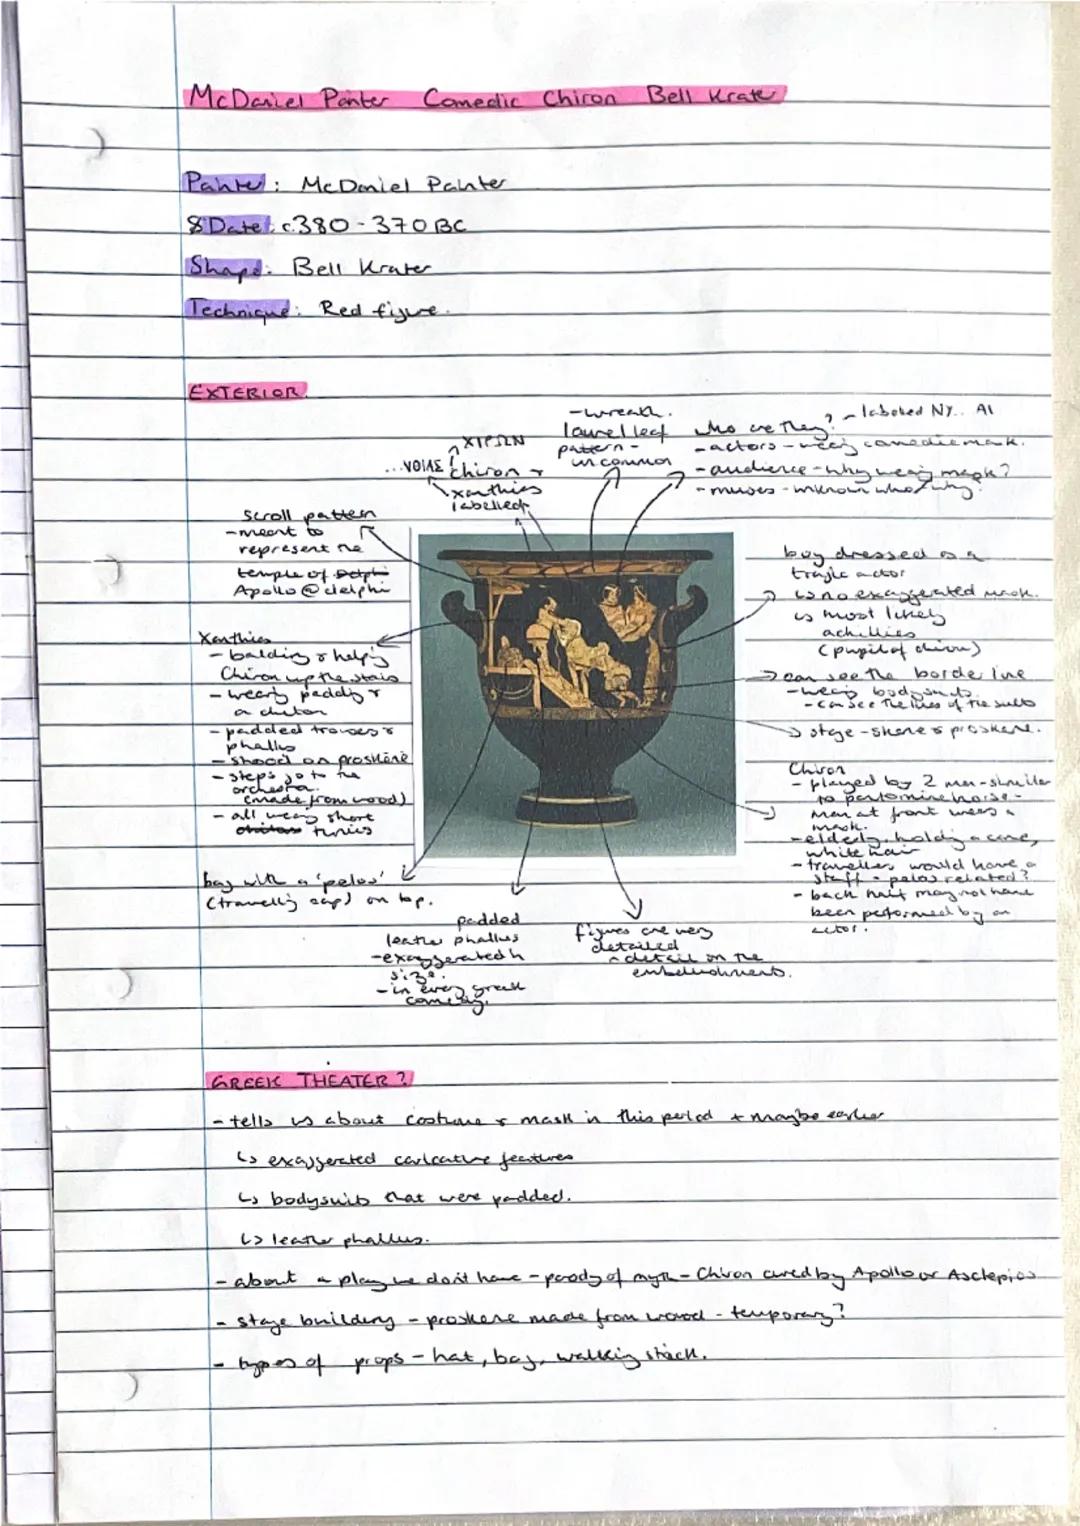 McDaniel Painter Comedic Chiron Bell Krater
Painter: McDaniel Painter
& Date: c.380 - 370 BC
Shape: Bell Krater
Technique: Red figure.
EXTERIOR
XIPΩN
...VOIAΣ
Chiron &
xanthias
labelled
-wreath.
laurel leaf
pattern -
uncommon
who are they? - labeled NY.. AI
- actors - wearing comedic mask.
- audience - why wearing mask?
- muses - unknown who/why?
scroll pattern
- meant to
represent the
temple of Delphi
Apollo @ delphi
Xanthias
- balding & help'g
Chiron up the stairs
- wearing padding &
a chiton
- padded trousers &
phallus
- stood on proskene
- steps go to the
orchestra.
(made from wood)
- all wearing short
chitons tunics
bag with a 'pelos'
(travelling cap) on top.
padded
leather phallus
- exaggerated in
size.
- in every greek
comedy.
figures are very
detailed
- detail on the
embellishments.
boy dressed as a
tragic actor
↳ no exaggerated mask.
↳ most likely
achillies
(pupil of chiron)
can see the border line
- wearing bodysuits.
- can see the lines of the suits
stage - skene & proskene.
Chiron
- played by 2 men - similar
to pantomime horse -
man at front wears a
mask.
- elderly, holding a cane,
white hair
- travellers would have a
staff - pelos related?
- back half may not have
been performed by an
actor.
GREEK THEATER?
- tells us about costume & mask in this period + maybe earlier
↳ exaggerated caricature features
↳ bodysuits that were padded.
↳ leather phallus.
- about a play we don't have - parody of myth - Chiron cured by Apollo or Asclepios
- stage building - proskene made from wood - temporary?
- types of props - hat, bag, walking stick.